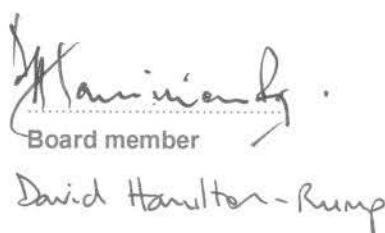 Board member
David Hamilton-Rump